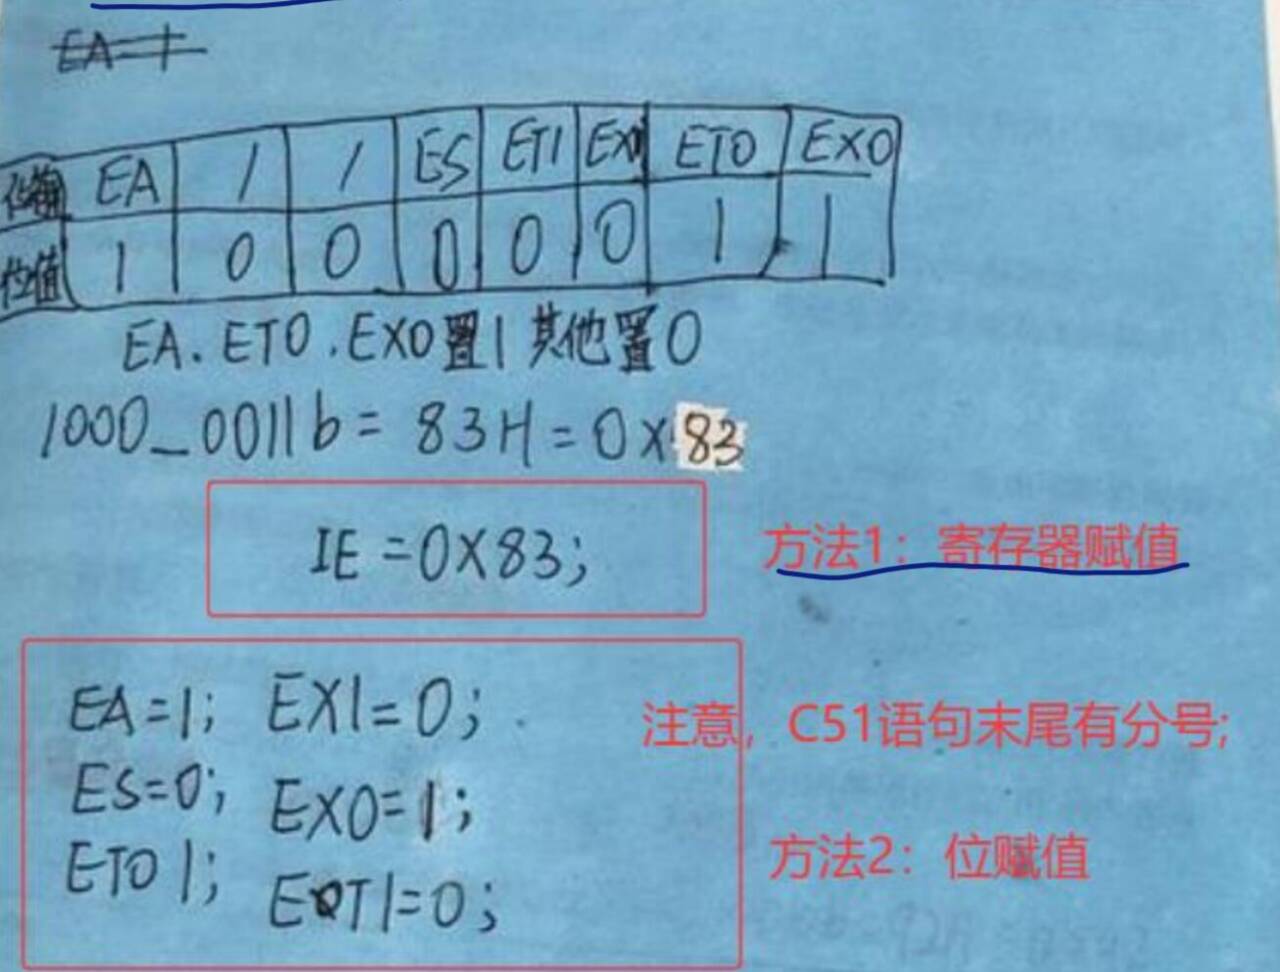 EA=1
位符 EA / / ES ET1 EX1 ET0 EX0
位值 1 0 0 0 0 0 1 1
EA.ET0.EX0置1其他置0
1000_0011b=83H=0x83
IE=0X83;
方法1：寄存器赋值
EA=1; EX1=0;
注意，C51语句末尾有分号;
ES=0; EX0=1;
ET0 1; ET1=0;
方法2：位赋值